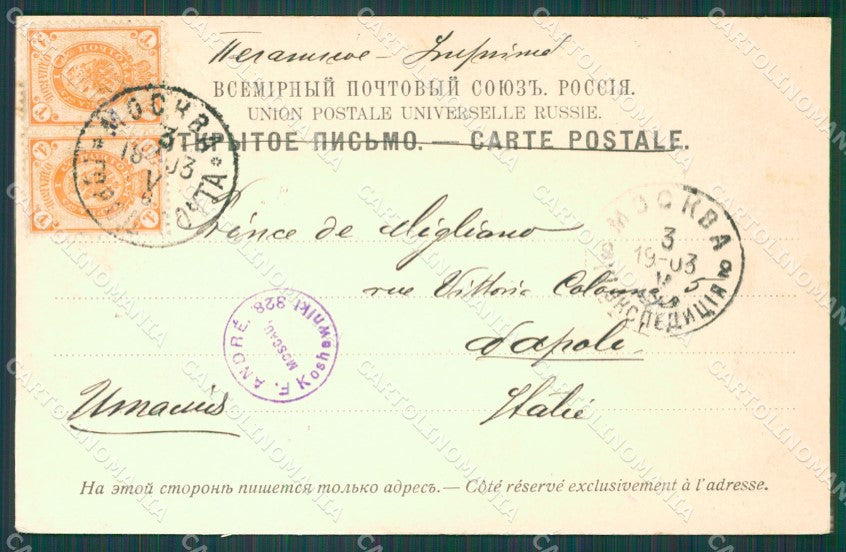 Печатное – Imprimé
ВСЕМІРНЫЙ ПОЧТОВЫЙ СОЮЗЪ. РОССІЯ.
UNION POSTALE UNIVERSELLE RUSSIE.
ОТКРЫТОЕ ПИСЬМО. — CARTE POSTALE.
МОСКВА
3
18-03
V
ПОЧТА
Prince de Migliano
МОСКВА
3
19-03
V
ЭКСПЕДИЦІЯ
rue Vittoria Colonna 5
F. ANDRÉ.
MOSCAU,
Koshewniki 328
Napoli
Италія
Italié
На этой сторонѣ пишется только адресъ. — Côté réservé exclusivement à l'adresse.
CARTOLINOMANIA